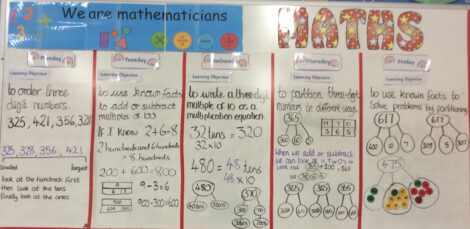 We are mathematicians
MATHS
Monday
Learning Objective
to order three
digit numbers.
325, 421, 356, 328
325, 328, 356, 421
Smallest largest
look at the hundreds first
then look at the tens
finally look at the ones
Tuesday
Learning Objective
to use known facts
to add or subtract
multiples of 100
If I know 2+6=8
2 hundreds and 6 hundreds
= 8 hundreds
200 + 600 = 800
9-3=6
900-300=600
Wednesday
Learning Objective
to write a three digit
multiple of 10 as a
multiplication equation
32 tens = 320
32×10
480 = 48 tens
48 × 10
480
Thursday
Learning Objective
to partition three-digit
numbers in different ways.
365
H T O
3 6 5
300 60 5
When we add or subtract
we can look at
365 365 365
Friday
Learning Objective
to use known facts to
Solve problems by partitioning
617 617
600 10 7
475